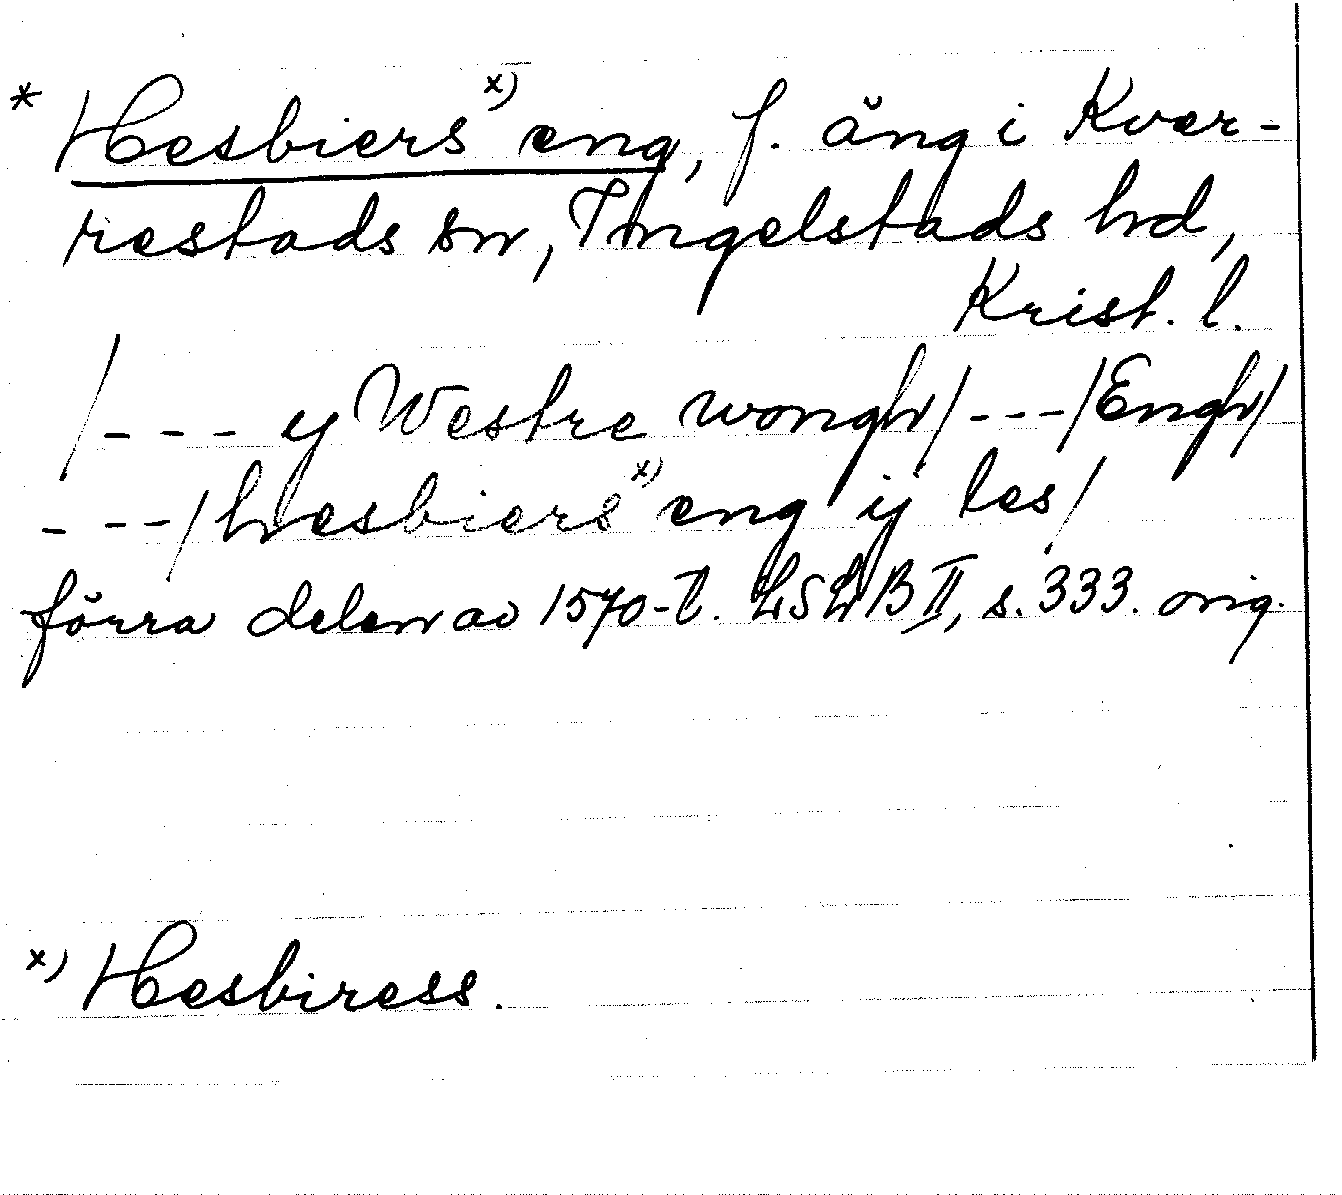 * Hesbiers x) eng, f. äng i Kver-
restads sn, Ingelstads hd,
Krist. l.
/--- y Westre wongh/---/Engh/
---/hesbiers x) eng ij les/
förra delen av 1570-t. LSLB II, s. 333. orig.
x) Hesbiress.